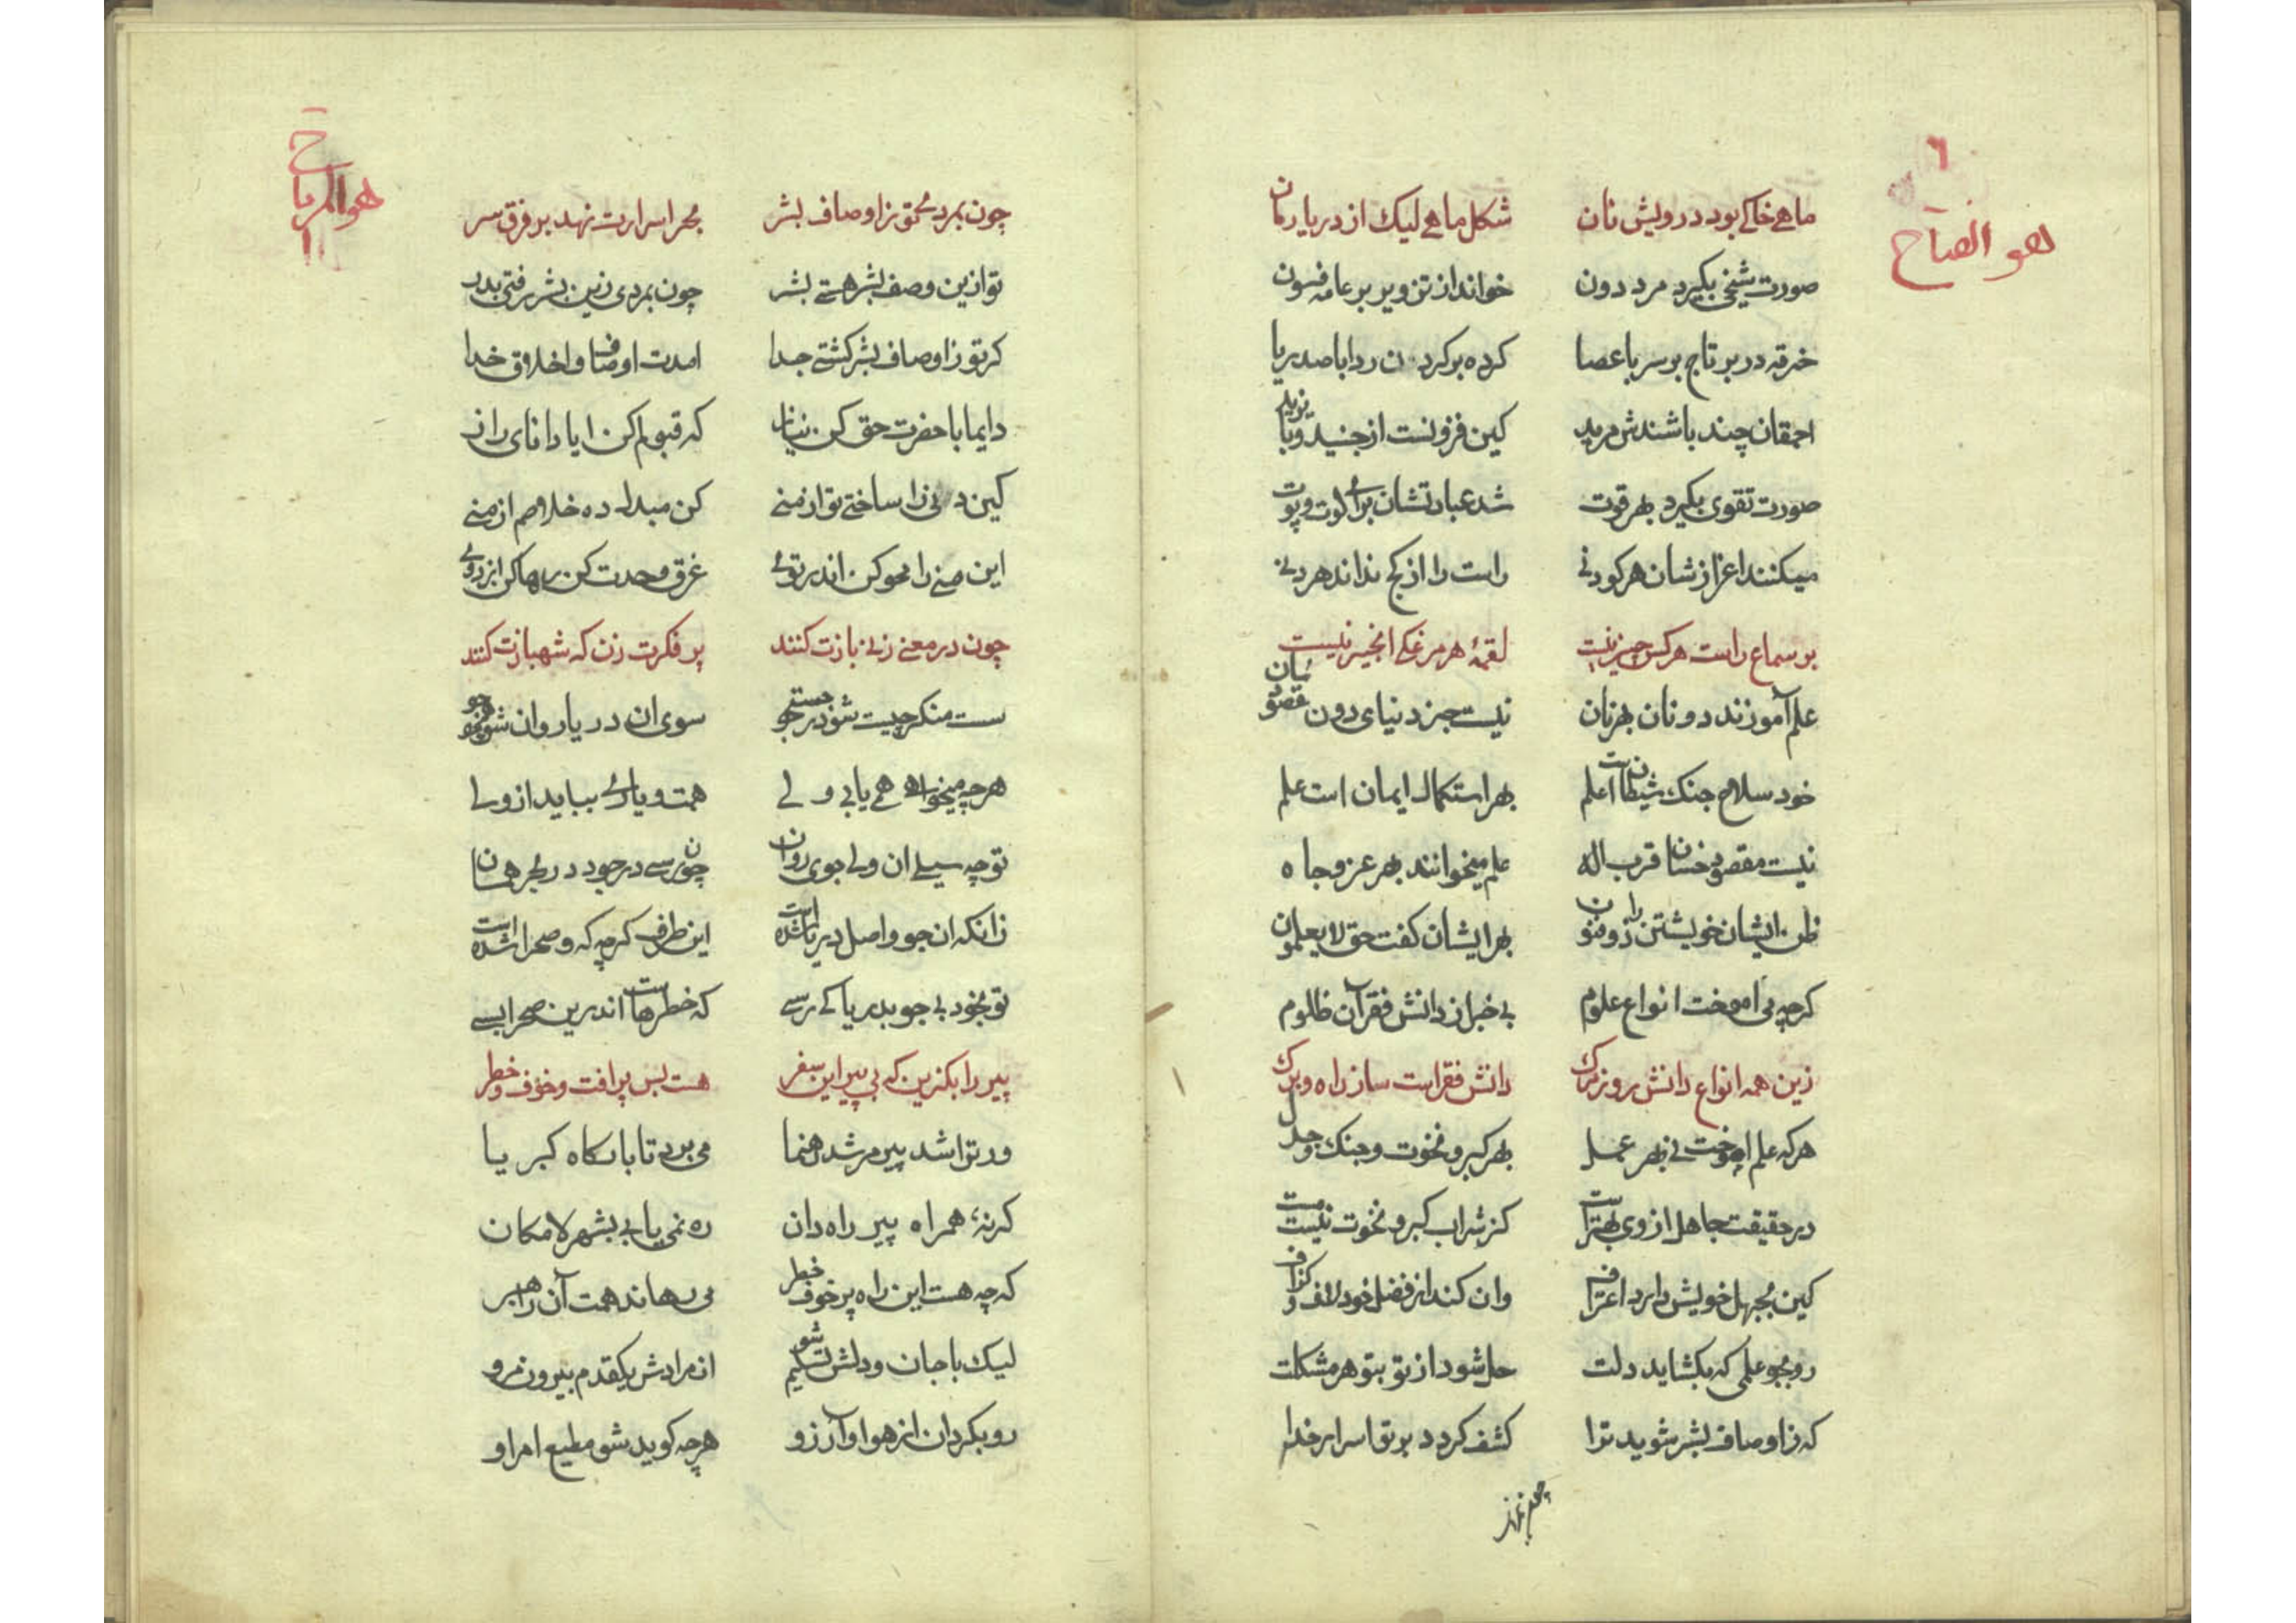 ٦
هو الفتاح
ماهی خاکی بود درویش نان شکل ماهی لیک از دریا رمان
صورت شیخی بکیرد مرد دون خواند از تزویر بر عامه فسون
خرقه در بر تاج بر سر با عصا کرده بر کردن ردا با صد ریا
احمقان چند باشندش مرید کین فزونست از جنید و بایزید
صورت تقوی بکیرد بهر قوت شد عبادتشان برای لوت و پوت
میکنند اعزازشان هر کودنی راست را از کج نداند هر دنی
بر سماع راست هر کس چیر نیست لقمهٔ هر مرغکی انجیر نیست
علم آموزند دونان بهر نان نیست جز دنیای دون مقصودشان
خود سلاح جنک شیطانست علم بهر استکمال ایمان است علم
نیست مقصود خسان قرب اله علم میخوانند بهر عز و جاه
ظن ایشان خویشتن را ذوفنون بهر ایشان کفت حق لا یعلمون
کرچه می اموخت انواع علوم بی خبر از دانش فقر آن ظلوم
زین همه انواع دانش روز مرک دانش فقر است ساز راه و برک
هر که علم اموخت نی بهر عمل بهر کبر و نخوت و جنک و جدل
در حقیقت جاهل از وی بهتر است کز شراب کبر و نخوت نیست مست
کین بجهل خویش دارد اعتراف وان کند از فضل خود لاف و کزاف
رو بجو علمی که بکشاید دلت حل شود از تو بتو هر مشکلت
که ز اوصاف بشر شوید ترا کشف کردد بر تو اسرار خدا
چون بمردی تو ز اوصاف بشر بحر اسرارت نهد بر فرق سر
تو ازین وصف بشر هستی بشر چون بمردی زین بشر رفتی بدر
کر تو ز اوصاف بشر کشتی جدا امدت اوصاف و اخلاق خدا
دایما با حضرت حق کن نیاز که قبولم کن ایا دانای راز
کین دنی را ساختی تو از منی کن مبدل ده خلاصم از منی
این منی را محو کن اندر توئی غرق وحدت کن رها کن از دوئی
چون در معنی زنی بازت کنند پر فکرت زن که شهبازت کنند
ست منکر چیست شو در جستجو سوی ان دریا روان شو جو بجو
هر چه میخواهی همی یابی ولی همت و یاری بباید از ولی
تو چه سیلی ان ولی جوی روان چون رسی در جو در بحر همان
زانکه ان جو واصل دریا شده است این طرف کرچه که و صحرا شده است
تو بخود بی جو بدریا کی رسی که خطرهاست اندرین صحرا بسی
پیر را بکزین که بی پیر این سفر هست بس پر افت و خوف و خطر
ور ترا شد پیر مرشد رهنما می برد تا بارکاه کبریا
کر نهٔ همراه پیر راه دان ره نمی یابی بشهر لامکان
کرچه هست این راه پر خوف و خطر می رهاند همت آن راهبر
لیک با جان و دلش تسلیم شو از مرادش یکقدم بیرون مرو
رو بکردان از هوا و آرزو هر چه کوید شو مطیع امر او